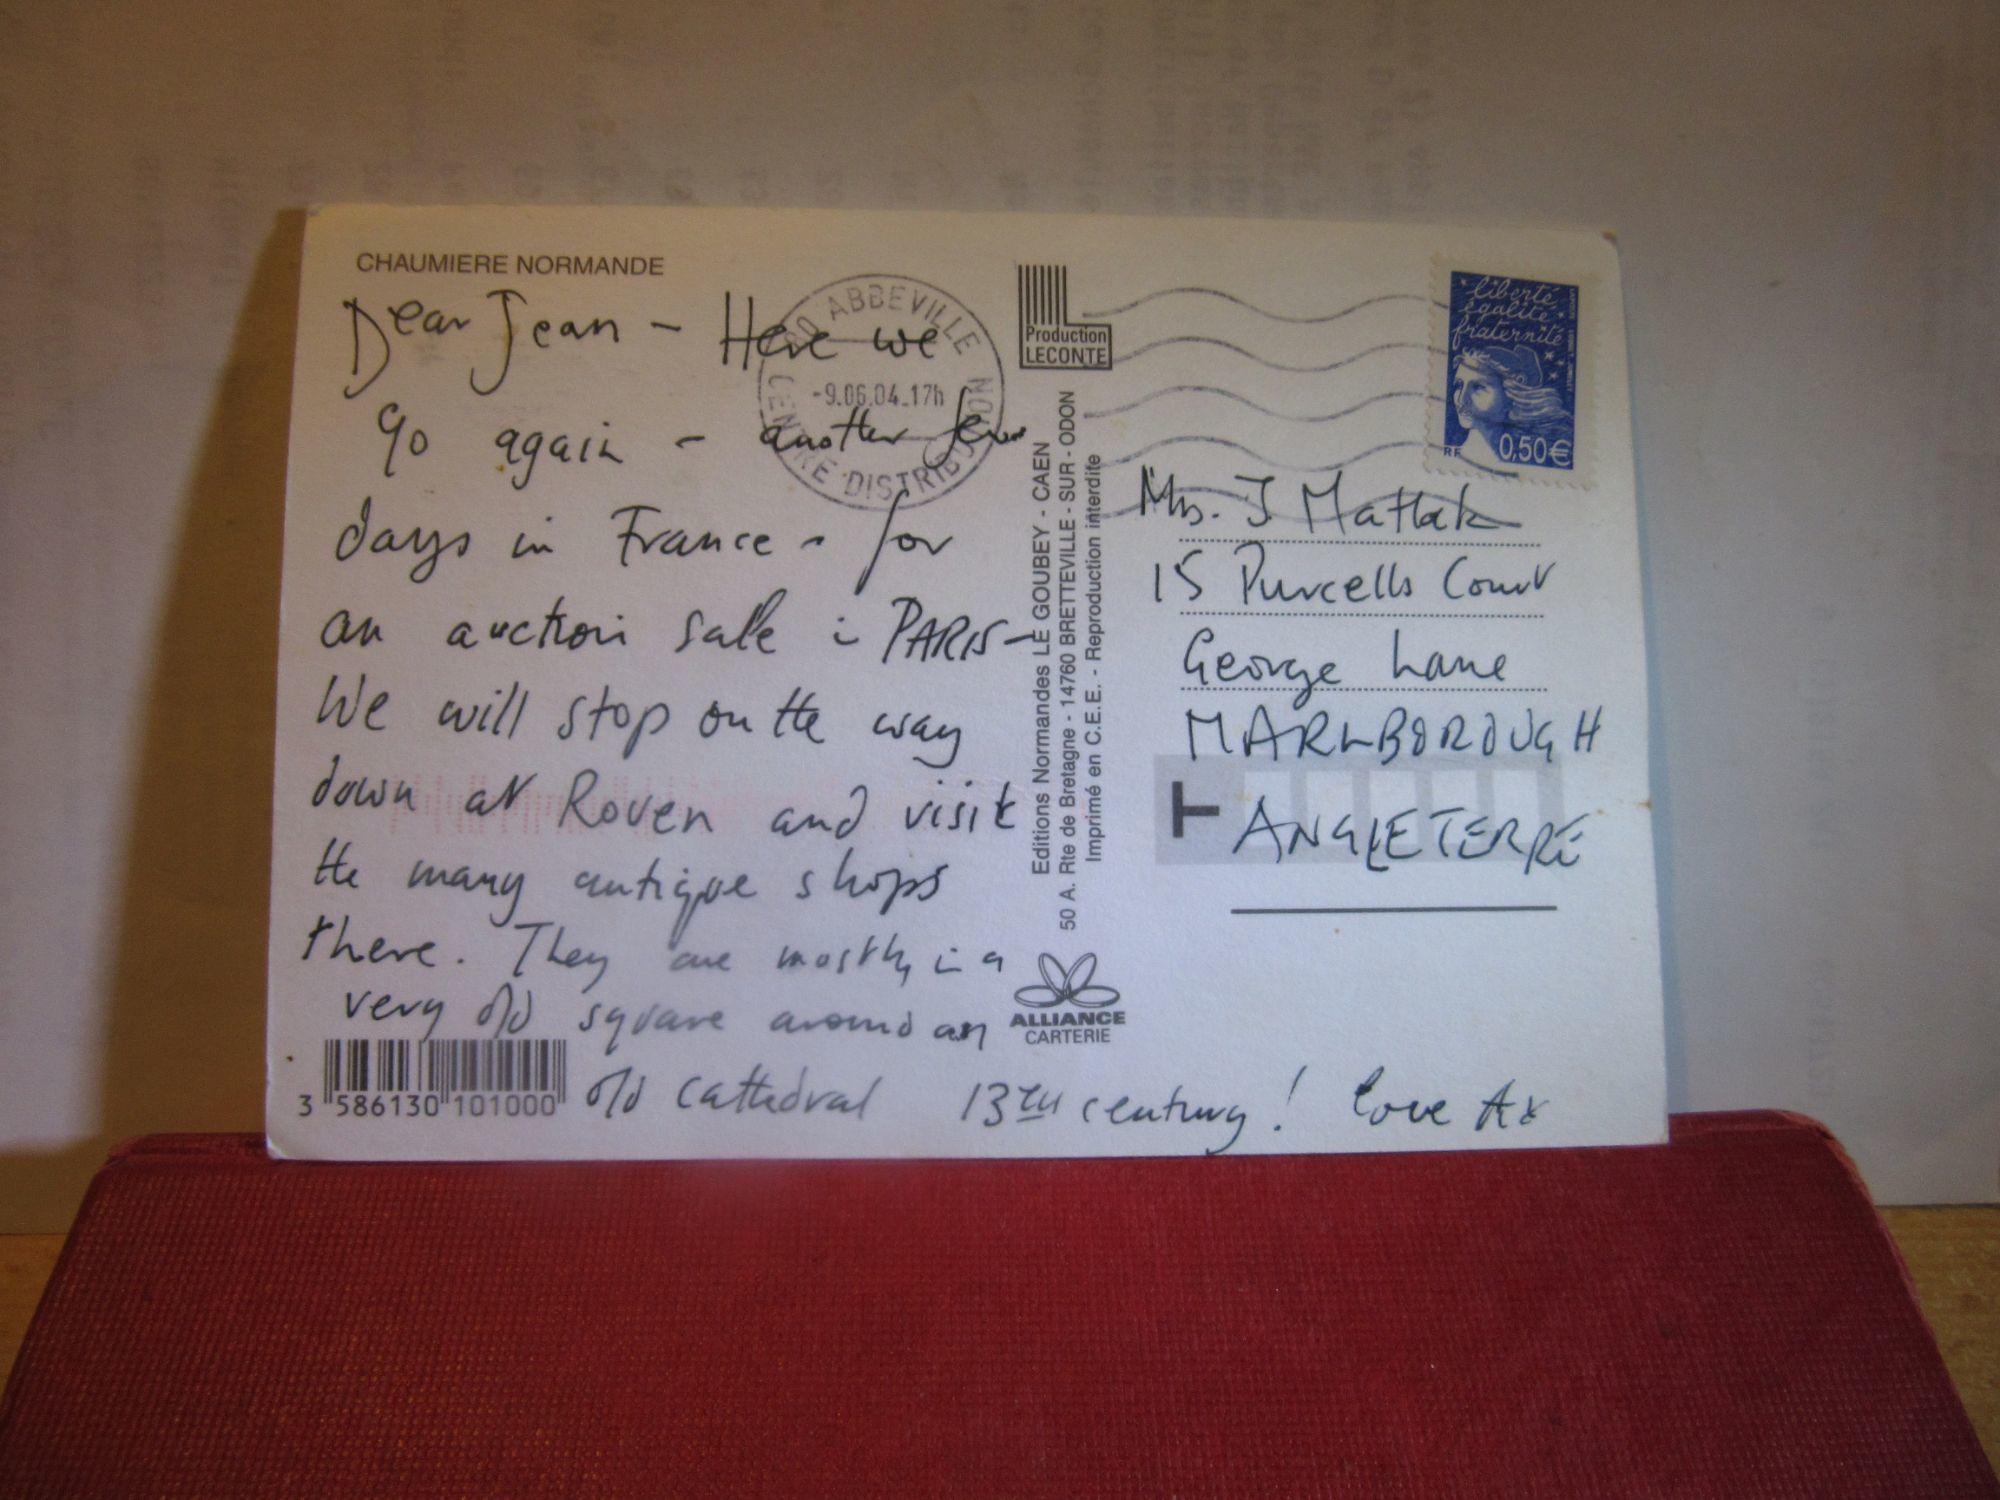 CHAUMIERE NORMANDE
Dear Jean - Here we
go again - another few
days in France - for
an auction sale in PARIS -
We will stop on the way
down at Rouen and visit
the many antique shops
there. They are mostly in a
very old square around an
old cathedral 13TH century! love Ax
3 586130 101000
80 ABBEVILLE
-9.06.04.17h
CENTRE DISTRIBUTION
Production
LECONTE
Editions Normandes LE GOUBEY - CAEN
50 A. Rte de Bretagne - 14760 BRETTEVILLE - SUR - ODON
Imprimé en C.E.E. - Reproduction interdite
ALLIANCE
CARTERIE
liberté
égalité
fraternité
RF 0,50€
Mrs. J Matlak
15 Purcells Court
George Lane
MARLBOROUGH
T ANGLETERRE